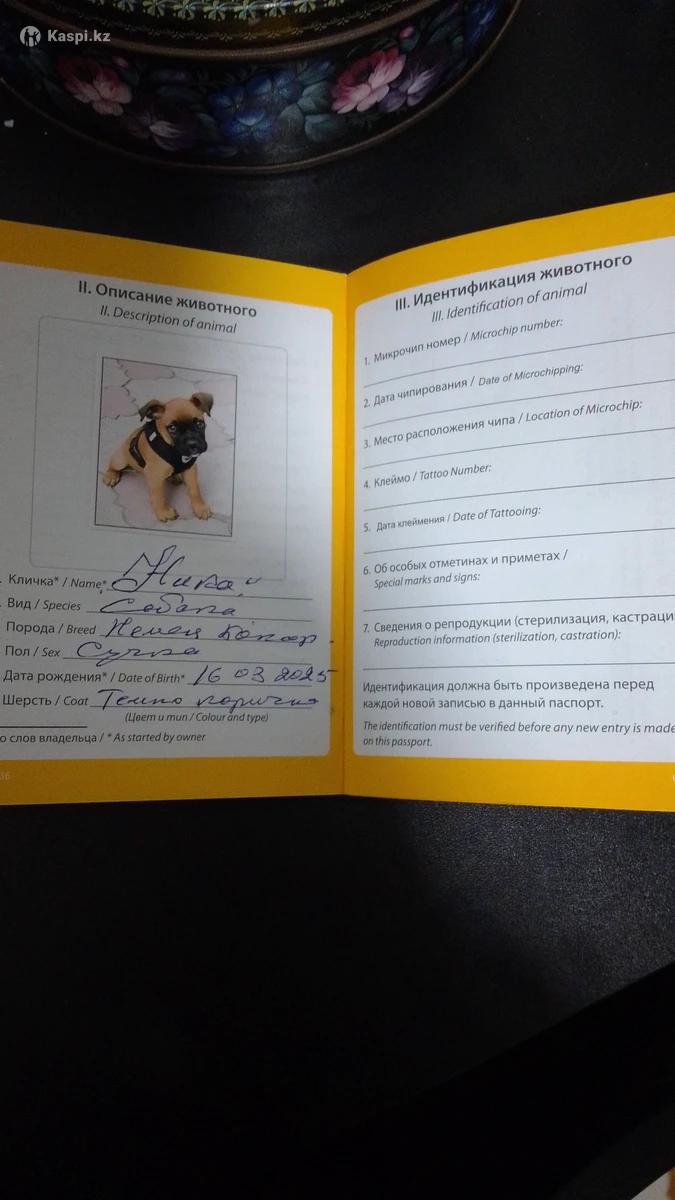 Kaspi.kz
II. Описание животного
II. Description of animal
Кличка* / Name* "Ника"
Вид / Species Собака
Порода / Breed Немец боксер
Пол / Sex Сучка
Дата рождения* / Date of Birth* 16 03 2025
Шерсть / Coat Темно коричн
(Цвет и тип / Colour and type)
о слов владельца / * As started by owner
36
III. Идентификация животного
III. Identification of animal
1. Микрочип номер / Microchip number:
2. Дата чипирования / Date of Microchipping:
3. Место расположения чипа / Location of Microchip:
4. Клеймо / Tattoo Number:
5. Дата клеймения / Date of Tattooing:
6. Об особых отметинах и приметах /
Special marks and signs:
7. Сведения о репродукции (стерилизация, кастраци
Reproduction information (sterilization, castration):
Идентификация должна быть произведена перед
каждой новой записью в данный паспорт.
The identification must be verified before any new entry is made
on this passport.